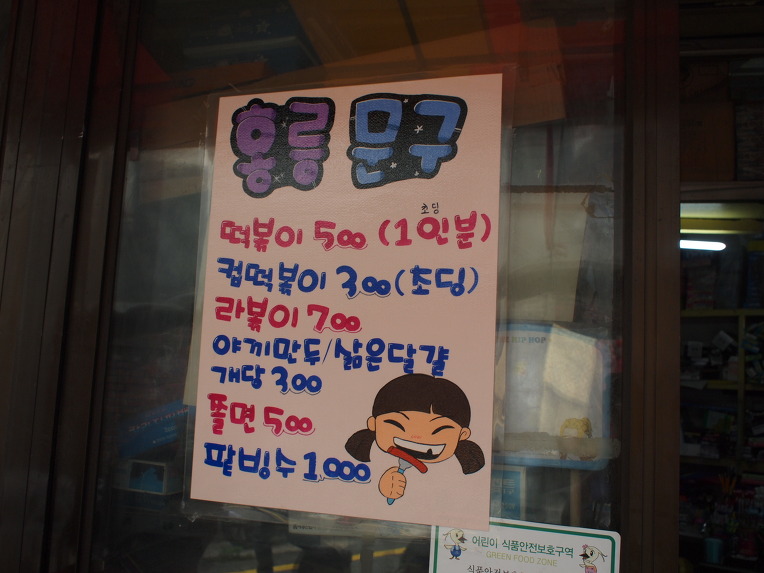 홍릉 문구
초딩
떡볶이 500 (1인분)
컵떡볶이 300(초딩)
라볶이 700
야끼만두/삶은달걀
개당 300
쫄면 500
팥빙수 1,000
어린이 식품안전보호구역
GREEN FOOD ZONE